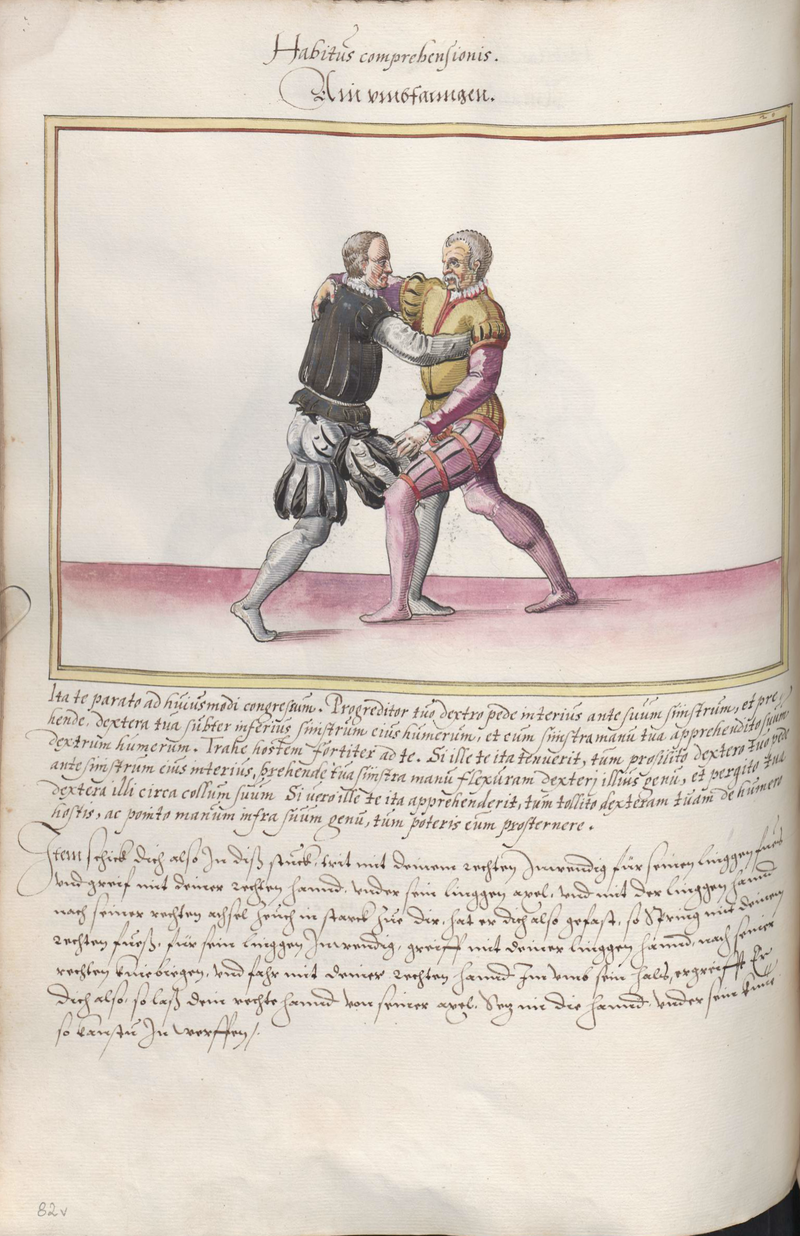 Habitus comprehensionis.
Ain umbfanngen.
Ita te parato ad huiusmodi congressum. Progreditor tuo dextro pede interius ante suum sinistrum, et pre,
hende, dextera tua subter inferius sinistrum eius humerum, et cum sinistra manu tua apprehendito suum
dextrum humerum. Trahe hostem fortiter ad te. Si ille te ita tenuerit, tum prosilito dextero tuo pede
ante sinistrum eius interius, prehende tua sinistra manu flexuram dexterj illius genu, et pergito tua
dextera illi circa collum suum Si vero ille te ita apprehenderit, tum tollito dexteram tuam de humero
hostis, ac ponito manum infra suum genu, tum poteris eum prosternere.
Item schick dich also In diß stuck, trit mit deinem rechten Inwendig für seinen linggen fues
vnd greif mit deiner rechten hannd, vnder sein linggen axel, vnd mit der linggen hannd
nach seiner rechten achsel zeuch in starck zue dir, hat er dich also gefast, so spring mit deinem
rechten fueß, für sein linggen Inwendig, greiff mit deiner linggen hannd, nach seiner
rechten kniebiegen, vnd fahr mit deiner rechten hannd Im vmb sein hals, ergreifft Er
dich also, so laß dein rechte hannd von seiner axel, Setz im die hannd vnder sein knie
so kanstu In werffen/.
82v